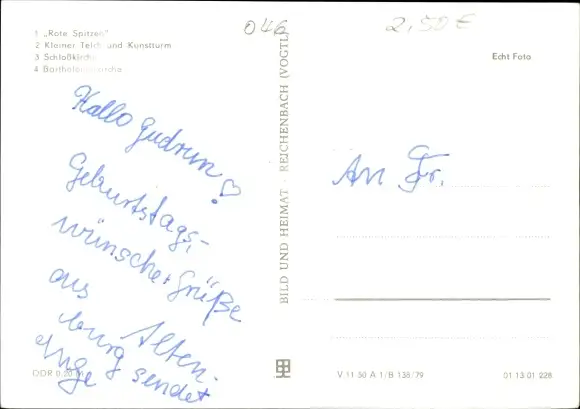 046
2,50 €
1 „Rote Spitzen"
2 Kleiner Teich und Kunstturm
3 Schloßkirche
4 Bartholomäikirche
Echt Foto
Hallo Gudrun!
Geburtstags,-
wünsche + Grüße
aus Alten-
burg sendet
ODR 0,20 M
BILD UND HEIMAT · REICHENBACH (VOGTL)
An Fr.
V 11 50 A 1/B 138/79
01 13 01 228